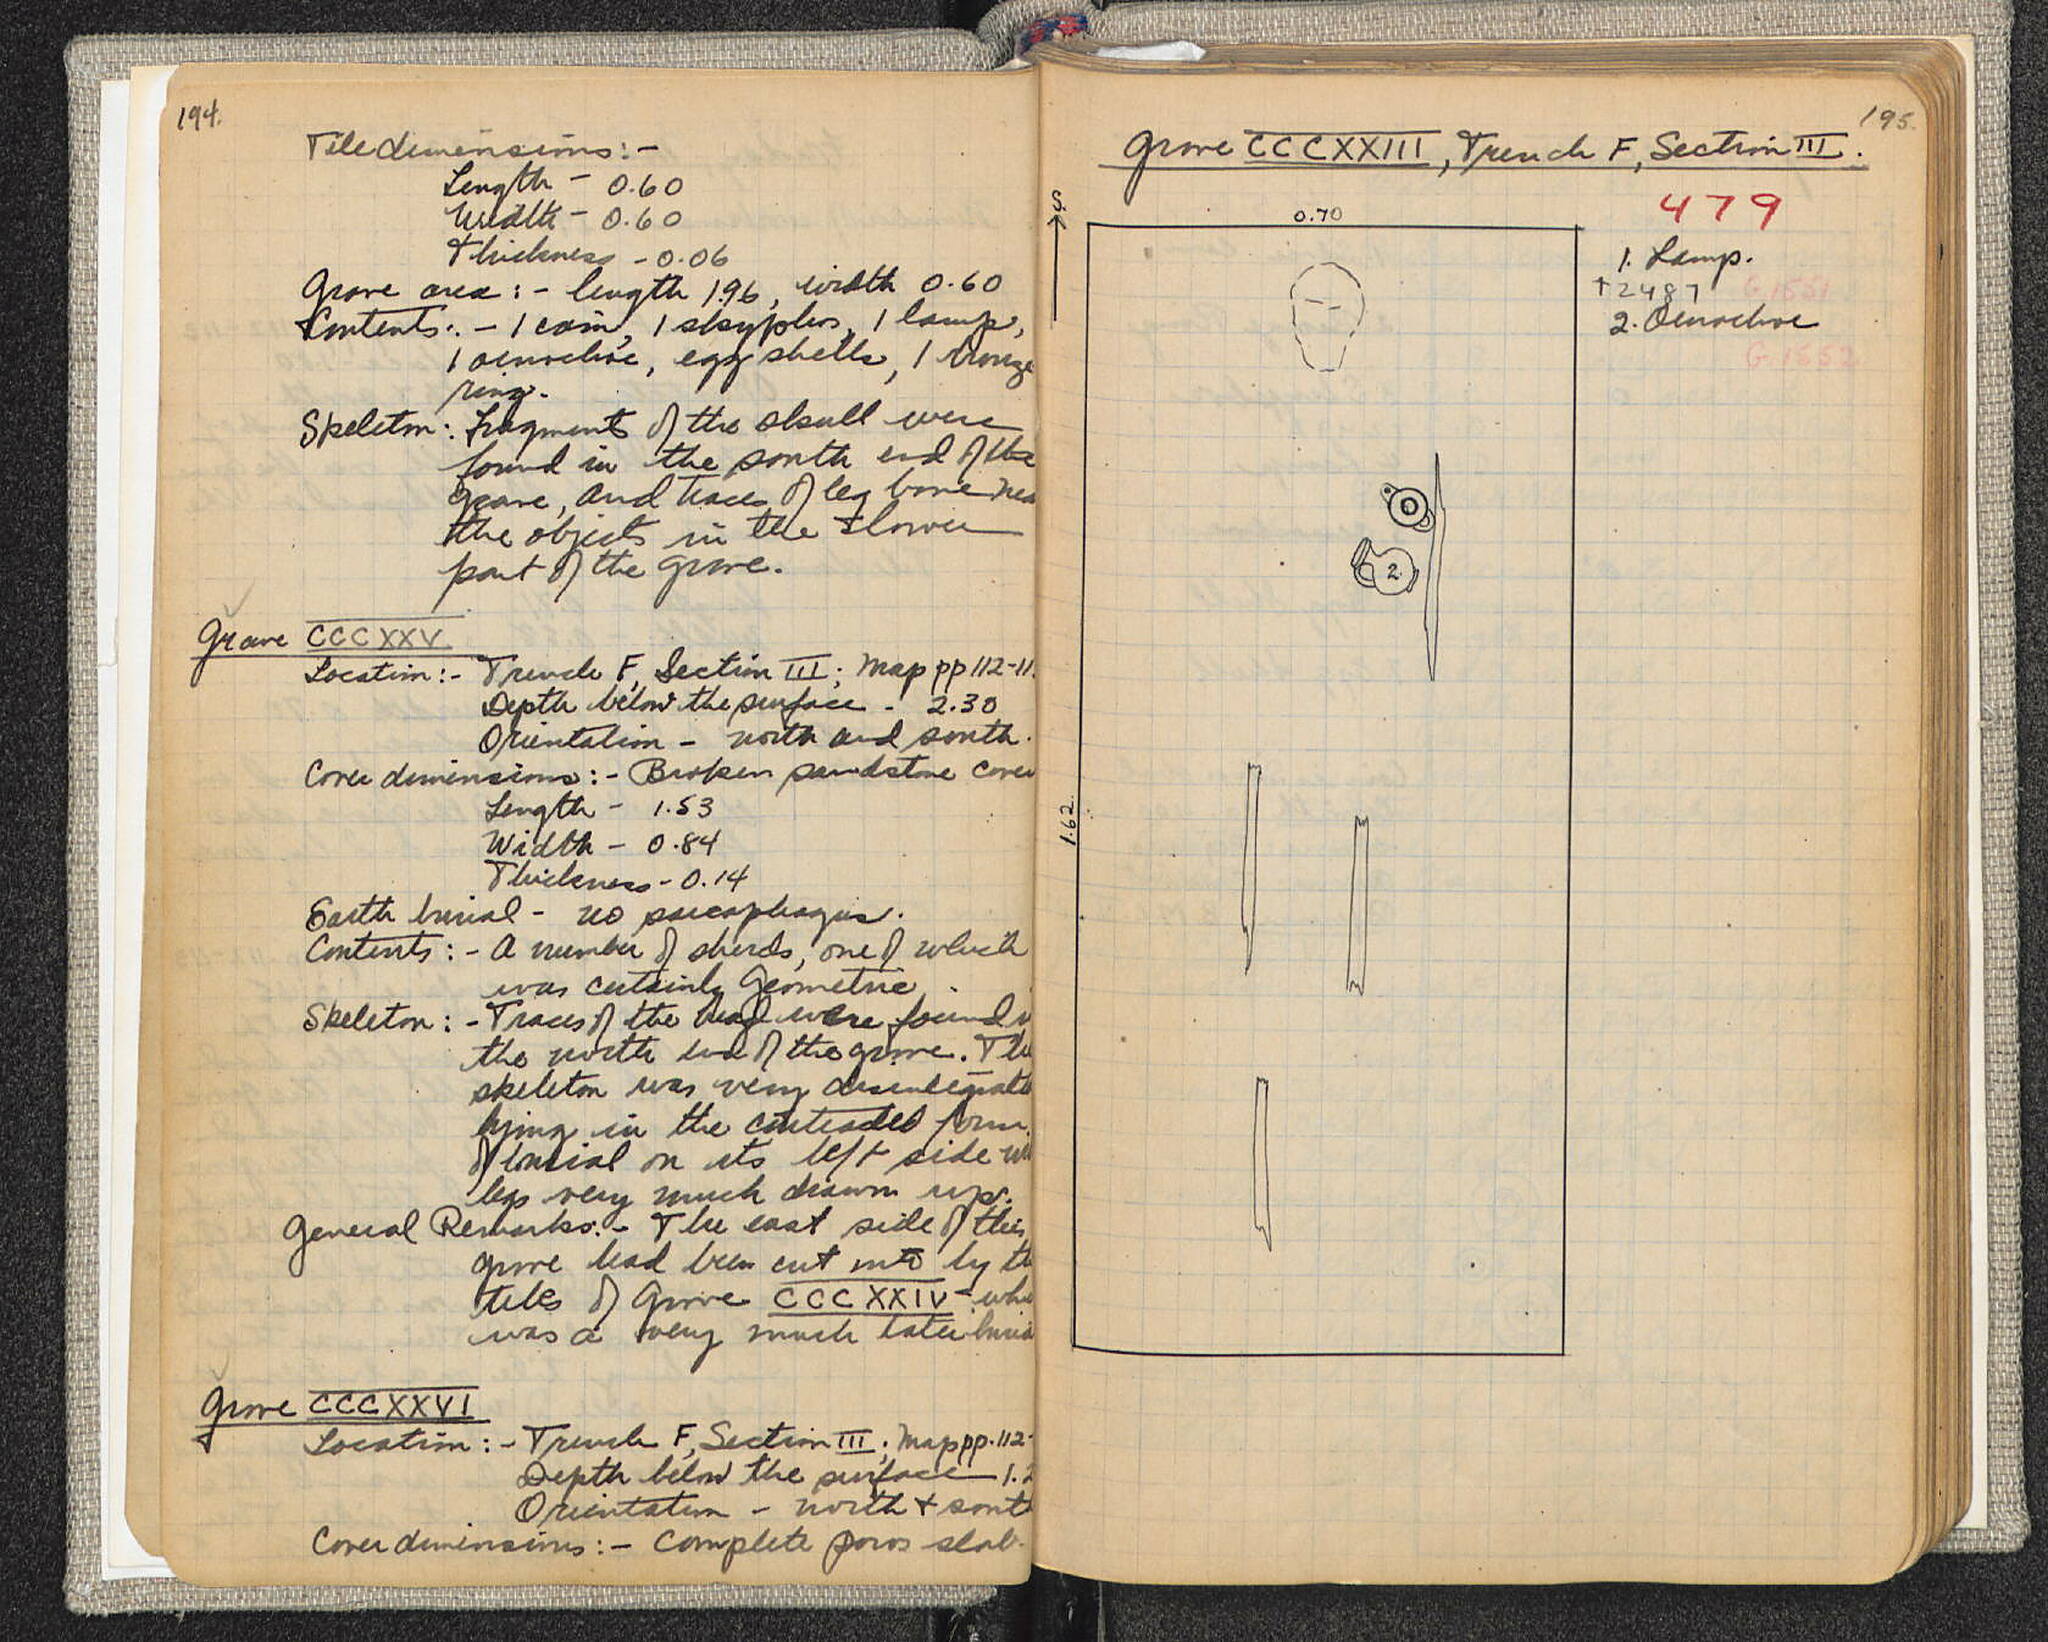 194.
Tile dimensions:-
Length - 0.60
Width - 0.60
Thickness - 0.06
Grave area:- length 1.96, width 0.60
Contents:- 1 coin, 1 skyphos, 1 lamp,
1 oenochoe, egg shells, 1 bronze
ring.
Skeleton: Fragments of the skull were
found in the south end of the
grave, and traces of leg bone
the objects in the lower
part of the grave.
Grave CCCXXV
Location:- Trench F, Section III; Map pp 112-11
Depth below the surface - 2.30
Orientation - north and south.
Cover dimensions:- Broken sandstone cover
Length - 1.53
Width - 0.84
Thickness - 0.14
Earth burial - no sarcophagus.
Contents:- A number of sherds, one of which
was certainly Geometric.
Skeleton:- Traces of the head were found
the north end of the grave. The
skeleton was very disintegrated
lying in the contracted form
of burial on its left side
legs very much drawn up.
General Remarks:- The east side of this
grave had been cut into by the
tiles of Grave CCCXXIV
was a very much later burial
Grave CCCXXVI
Location:- Trench F, Section III; Map pp. 112-
Depth below the surface 1.2
Orientation - north + south
Cover dimensions:- Complete poros slab.
195.
Grave CCCXXIII, Trench F, Section III.
479
S.
0.70
1. Lamp.
†2487 G.1551
2. Oenochoe
G.1552
2.
1.62